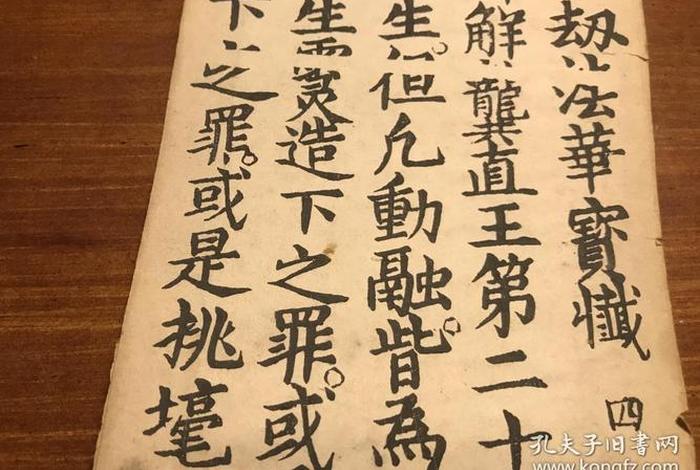 劫法華寶懺 四
解龔直王第二十
生。但凡動融。皆為
生造下之罪。或
下之罪。或是挑
孔夫子旧书网
www.kongfz.com